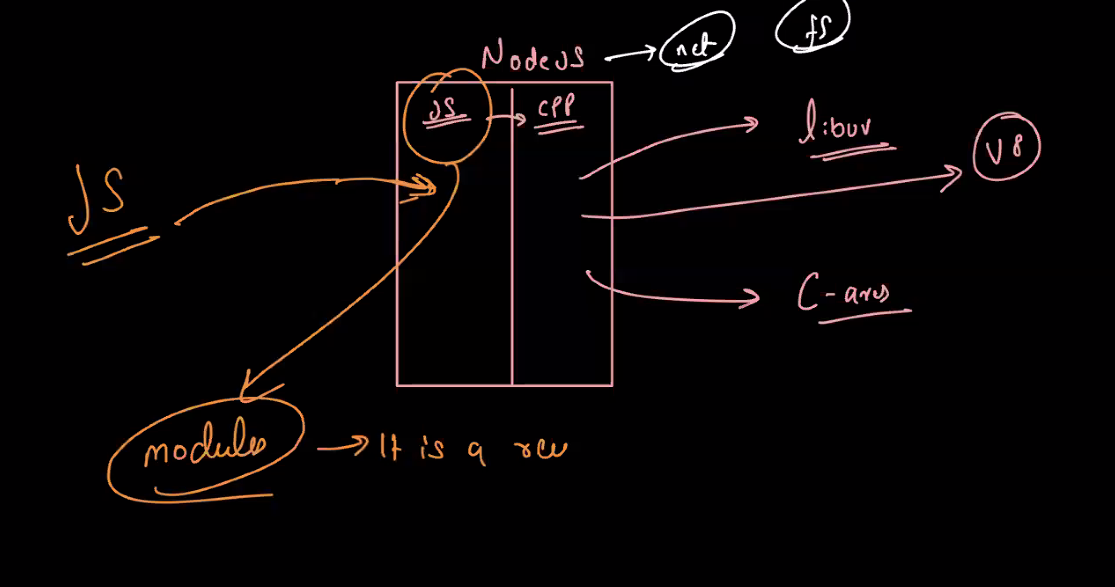 fs
NodeJS → net
JS → CPP
libuv
V8
JS
C-ares
modules → It is a reu